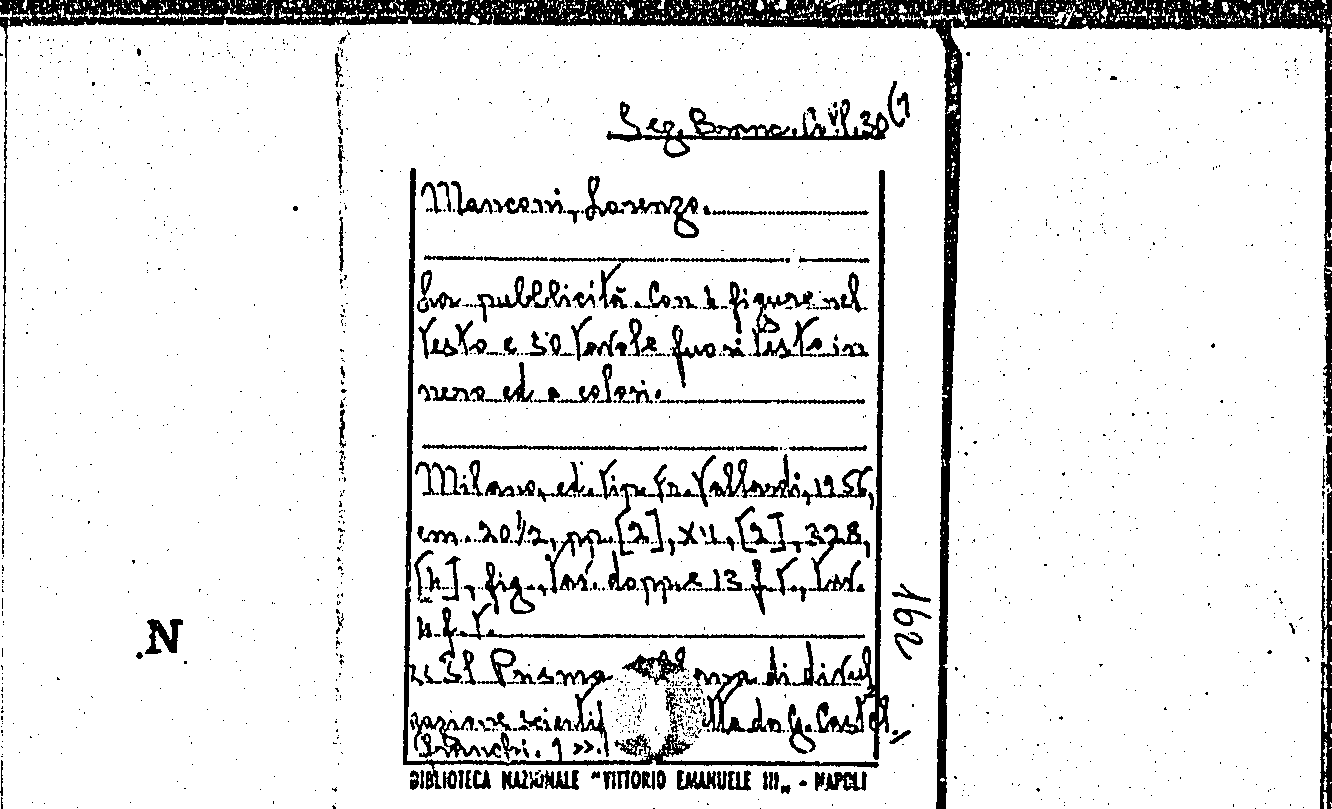 Sez. Branc. Civil. 30 (9
Manconi, Lorenzo.
La pubblicità. Con 4 figure nel
testo e 30 tavole fuori testo in
nero ed a colori.
Milano, ed. tip. Fr. Vallardi, 1956,
cm. 20 1/2, pp. [2], XII, [2], 328,
[4], fig., tav. doppie 13 f. t., tav.
4 f. t.
«Il Prisma di divul
gazione scientif da G. Castel
franchi. 9».
162
N
BIBLIOTECA NAZIONALE "VITTORIO EMANUELE III" - NAPOLI